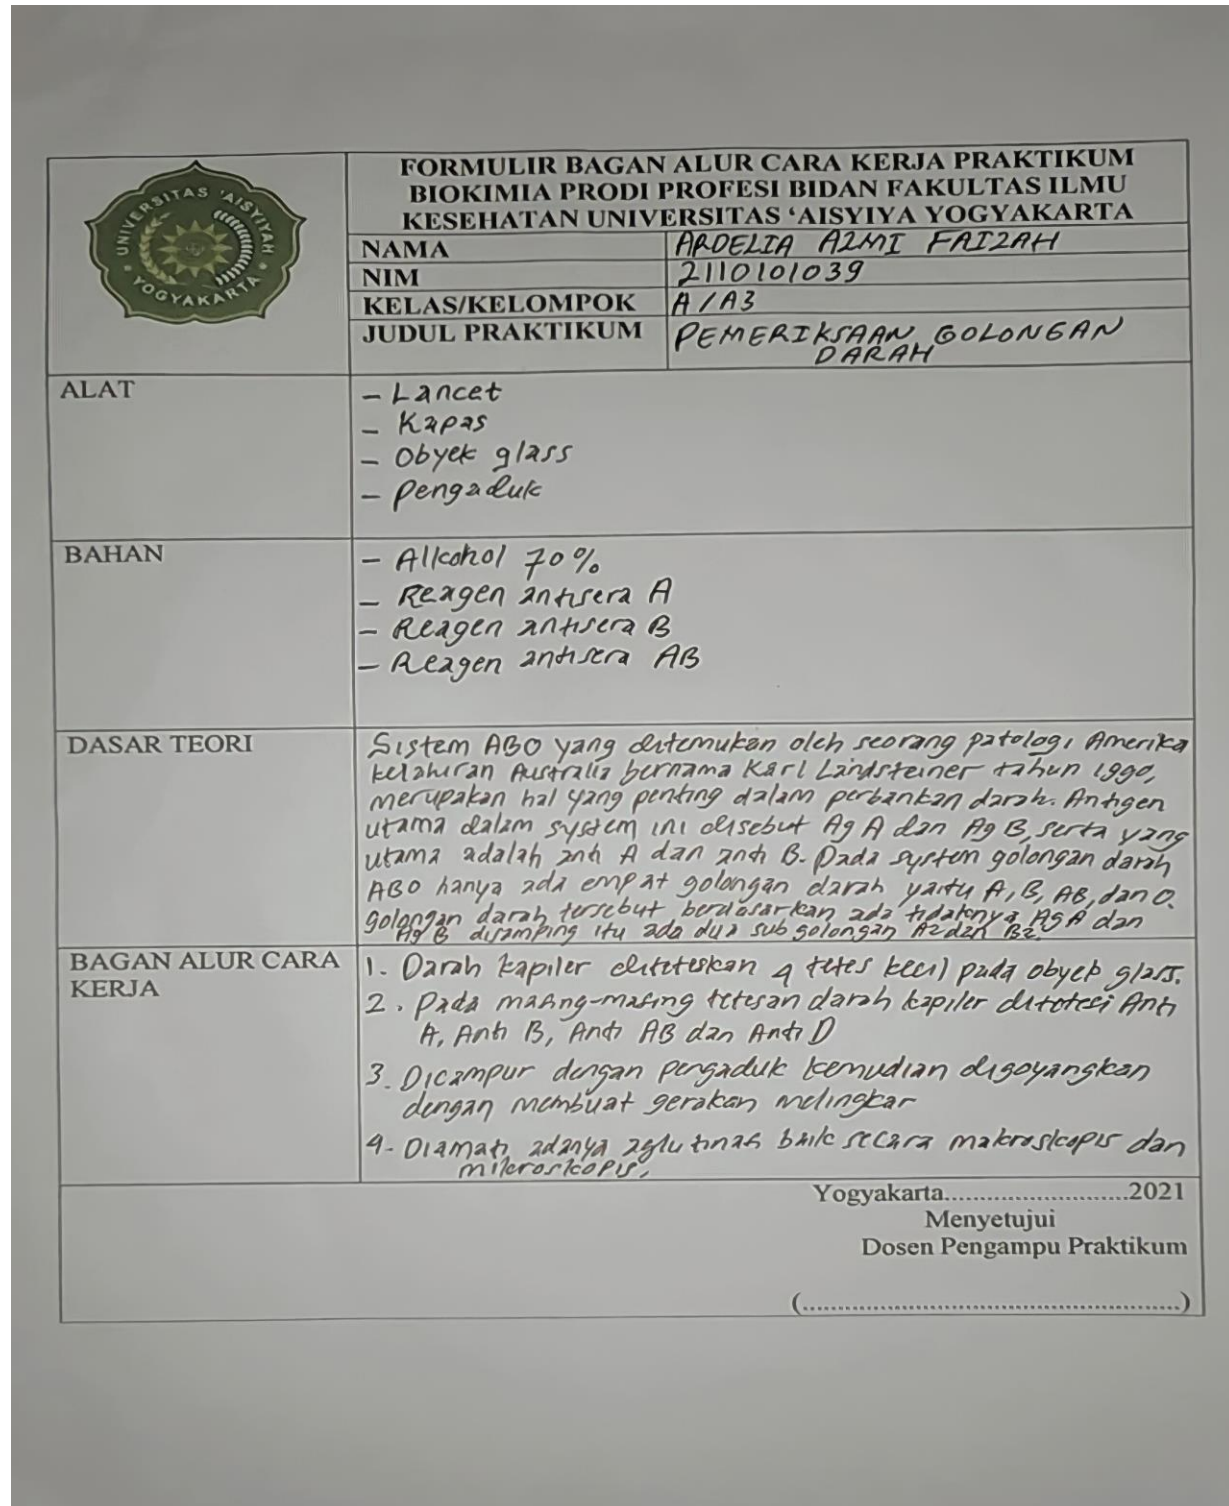 UNIVERSITAS 'AISYIYAH
YOGYAKARTA
FORMULIR BAGAN ALUR CARA KERJA PRAKTIKUM
BIOKIMIA PRODI PROFESI BIDAN FAKULTAS ILMU
KESEHATAN UNIVERSITAS ‘AISYIYA YOGYAKARTA
NAMA ARDELIA AZMI FAIZAH
NIM 2110101039
KELAS/KELOMPOK A/A3
JUDUL PRAKTIKUM PEMERIKSAAN GOLONGAN
DARAH
ALAT
- Lancet
- Kapas
- Obyek glass
- Pengaduk
BAHAN
- Allkohol 70%
- Reagen antisera A
- Reagen antisera B
- Reagen antisera AB
DASAR TEORI
Sistem ABO yang ditemukan oleh seorang patologi Amerika
kelahiran Australia bernama Karl Landsteiner tahun 1990,
merupakan hal yang penting dalam perbankan darah. Antigen
utama dalam system ini disebut Ag A dan Ag B, serta yang
utama adalah anti A dan anti B. Pada system golongan darah
ABO hanya ada empat golongan darah yaitu A, B, AB, dan O.
golongan darah tersebut berdasarkan ada tidaknya Ag A dan
Ag B disamping itu ada dua sub golongan A2 dan B2.
BAGAN ALUR CARA
KERJA
1. Darah kapiler diteteskan 4 tetes kecil pada obyek glass.
2. Pada masing-masing tetesan darah kapiler ditetesi Anti
A, Anti B, Anti AB dan Anti D
3. Dicampur dengan pengaduk kemudian digoyangkan
dengan membuat gerakan melingkar
4. Diamati adanya aglutinasi baik secara makroskopis dan
mikroskopis.
Yogyakarta...........................2021
Menyetujui
Dosen Pengampu Praktikum
(......................................................)